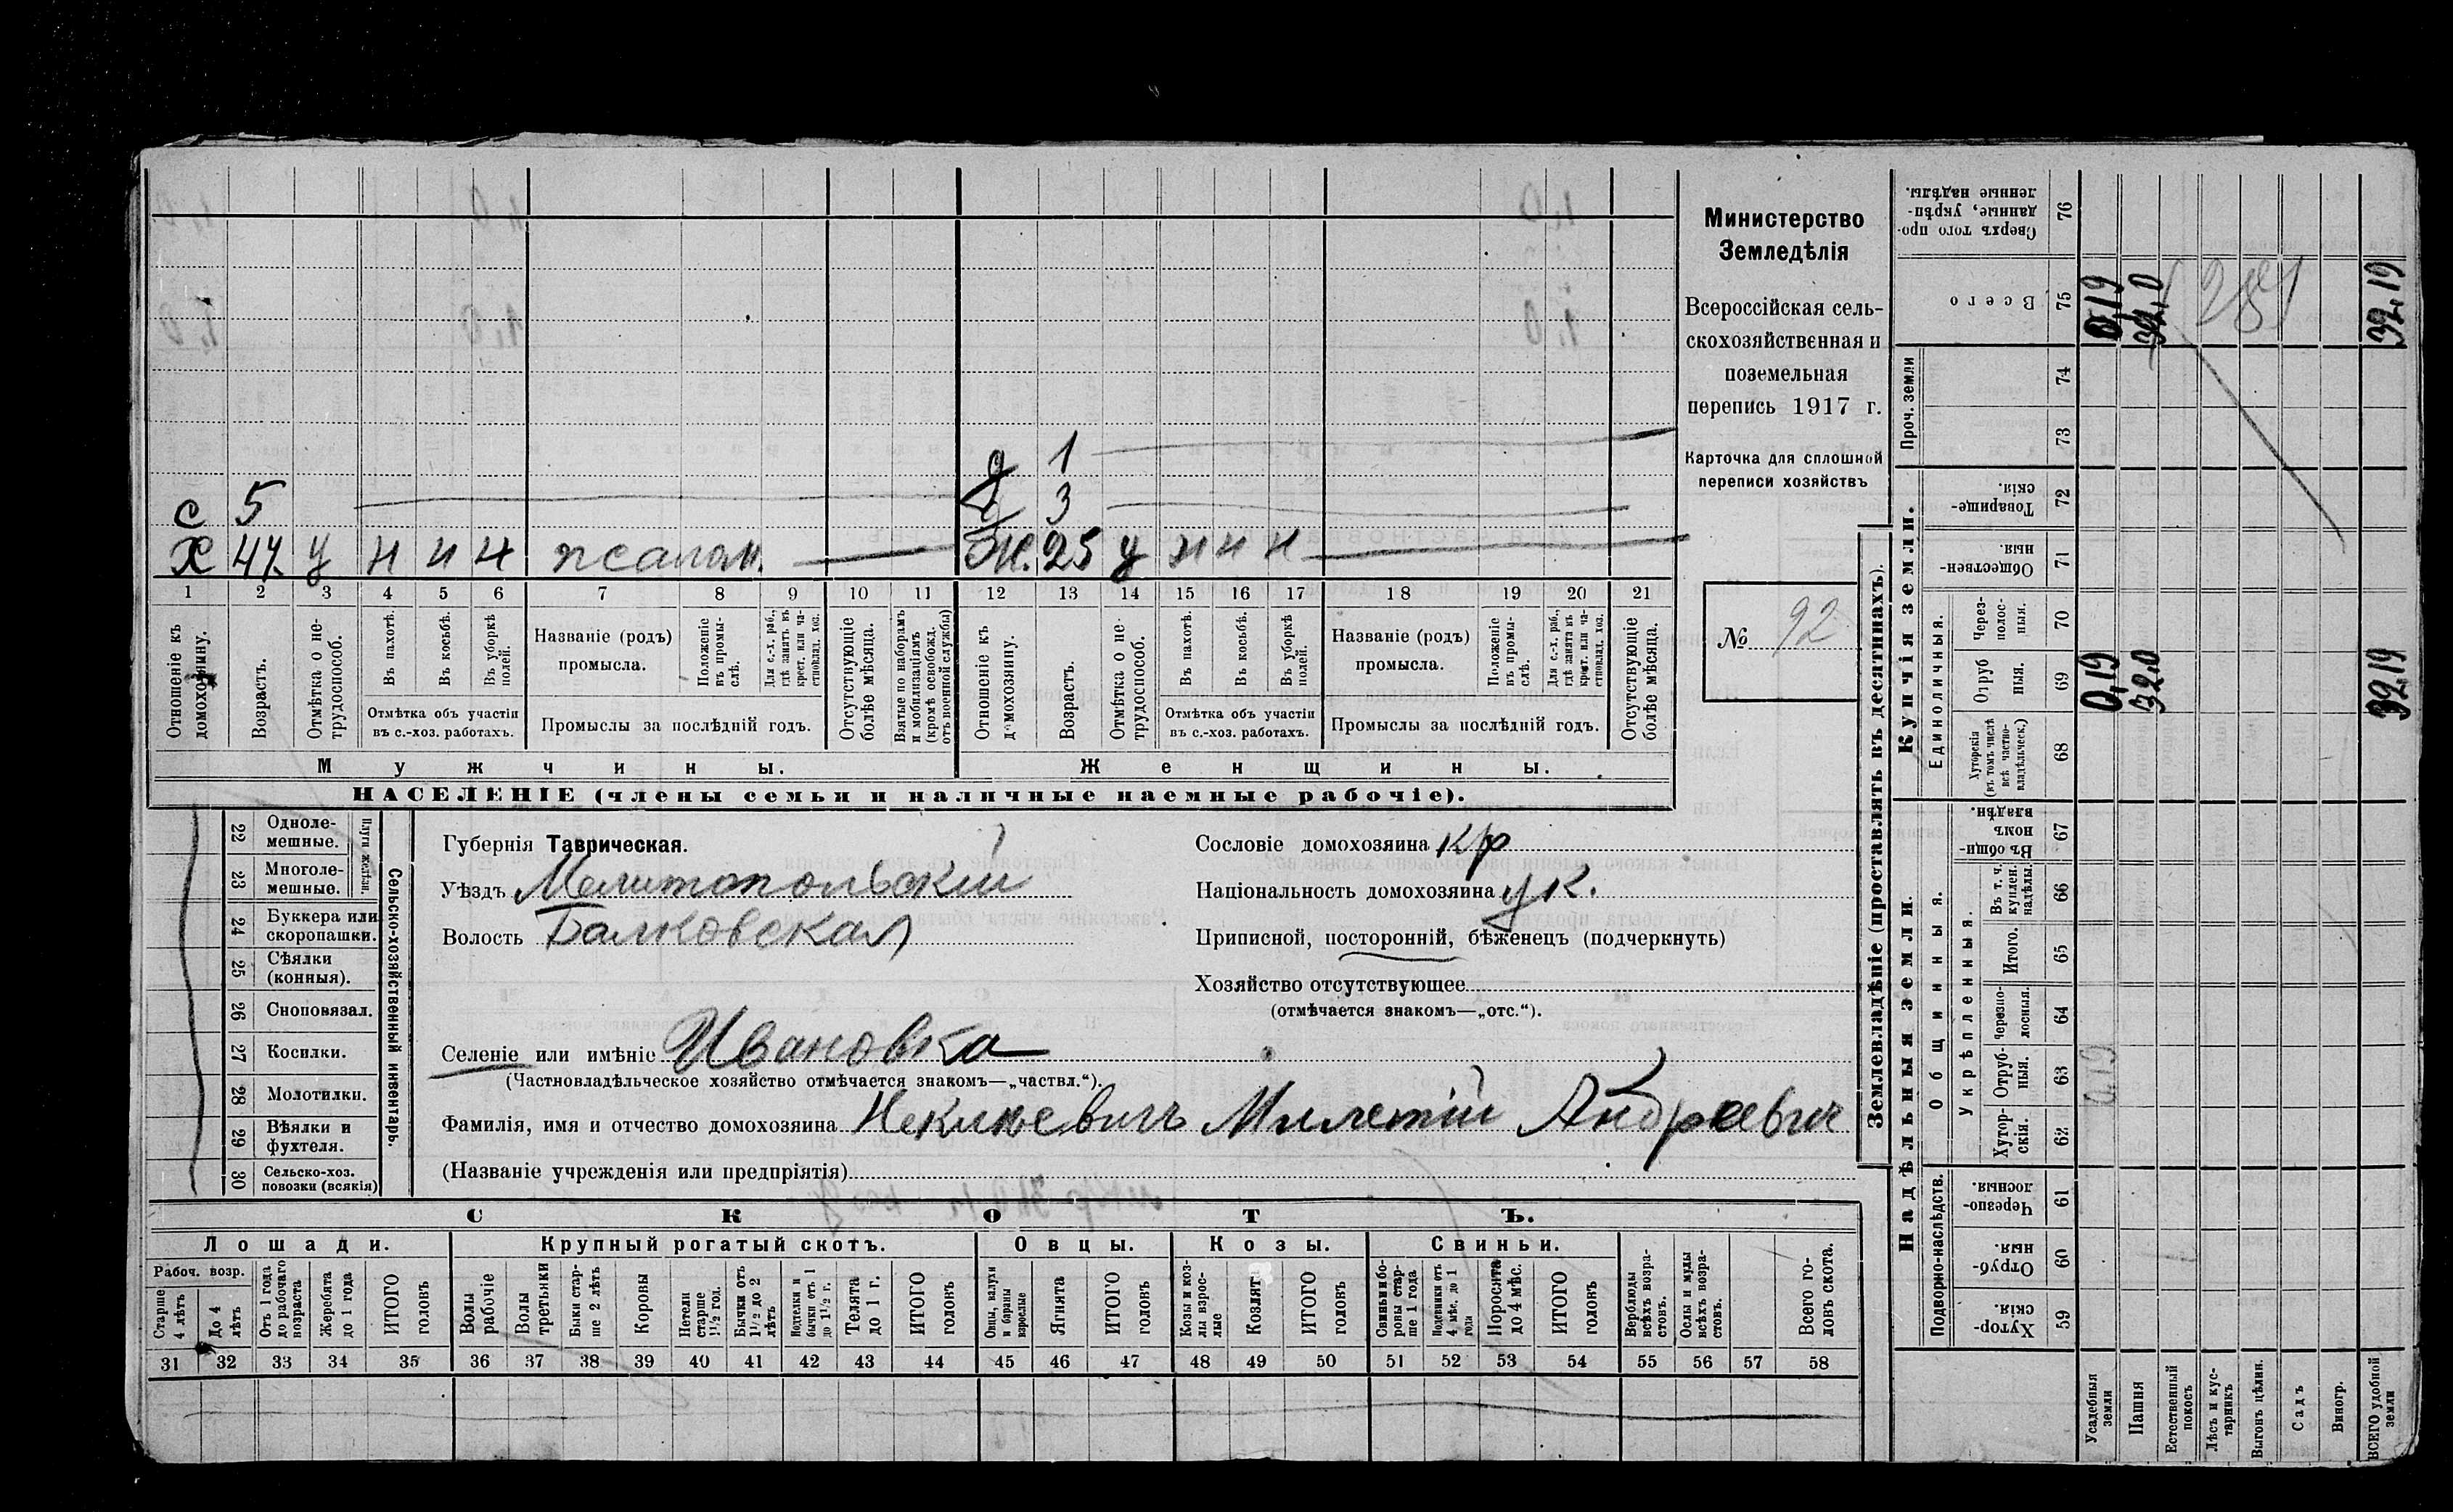 Министерство
Земледѣлія
Всероссійская сель-
скохозяйственная и
поземельная
перепись 1917 г.
Карточка для сплошной
переписи хозяйствъ
№ 92
д 1
с 5
д 3
Х 47 у н н н псалом. Ж. 25 у н н н
1 2 3 4 5 6 7 8 9 10 11 12 13 14 15 16 17 18 19 20 21
Отношеніе къ домохозяину.
Возрастъ.
Отмѣтка о не-трудоспособ.
Въ пахотѣ.
Въ косьбѣ.
Въ уборкѣ полей.
Отмѣтка объ участіи
въ с.-хоз. работахъ.
Названіе (родъ)
промысла.
Положеніе въ промы-слѣ.
Для с.-х. раб., гдѣ занятъ въ крест. или ча-стновлад. хоз.
Промыслы за послѣдній годъ.
Отсутствующіе болѣе мѣсяца.
Взятые по наборамъ и мобилизаціямъ (кромѣ освобожд. отъ военной службы)
Отношеніе къ домохозяину.
Возрастъ.
Отмѣтка о не-трудоспособ.
Въ пахотѣ.
Въ косьбѣ.
Въ уборкѣ полей.
Отмѣтка объ участіи
въ с.-хоз. работахъ.
Названіе (родъ)
промысла.
Положеніе въ промы-слѣ.
Для с.-х. раб., гдѣ занята въ крест. или ча-стновлад. хоз.
Промыслы за послѣдній годъ.
Отсутствующіе болѣе мѣсяца.
Мужчины.
Женщины.
НАСЕЛЕНІЕ (члены семьи и наличные наемные рабочіе).
Сельско-хозяйственный инвентарь.
22 Одноле-мешные.
23 Многоле-мешные.
24 Буккера или скоропашки.
25 Сѣялки (конныя).
26 Сноповязал.
27 Косилки.
28 Молотилки.
29 Вѣялки и фухтеля.
30 Сельско-хоз. повозки (всякія)
Губернія Таврическая.
Уѣздъ Мелитопольскій
Волость Балковская
Селеніе или имѣніе Ивановка
(Частновладѣльческое хозяйство отмѣчается знакомъ—„частвл.“).
Сословіе домохозяина кр
Національность домохозяина ук.
Приписной, посторонній, бѣженецъ (подчеркнуть)
Хозяйство отсутствующее
(отмѣчается знакомъ—„отс.“).
Фамилія, имя и отчество домохозяина Милетій Андреевич
(Названіе учрежденія или предпріятія)
СКОТЪ.
Лошади.
Крупный рогатый скотъ.
Овцы.
Козы.
Свиньи.
Рабоч. возр.
Старше 4 лѣтъ
До 4 лѣтъ
Отъ 1 года до рабочаго возраста
Жеребята до 1 года
ИТОГО головъ
Волы рабочіе
Волы третьяки
Быки стар-ше 2 лѣтъ
Коровы
Нетели старше 1½ год.
Бычки отъ 1½ до 2 лѣтъ
Подтелки и бычки отъ 1 до 1½ г.
Телята до 1 г.
ИТОГО головъ
Овцы, валухи и бараны взрослые
Ягнята
ИТОГО головъ
Козы и коз-лы взрос-лые
Козлят
ИТОГО головъ
Свиньи и бо-ровы стар-ше 1 года
Подсвинки отъ 4 мѣс. до 1 года
Поросята до 4 мѣс.
ИТОГО головъ
Верблюды всѣхъ возра-стовъ.
Ослы и мулы всѣхъ возра-стовъ.
Всего го-ловъ скота.
31 32 33 34 35 36 37 38 39 40 41 42 43 44 45 46 47 48 49 50 51 52 53 54 55 56 57 58
Землевладѣніе (проставлять въ десятинахъ).
Надѣльныя земли.
Купчія земли.
Проч. земли
Подворно-наслѣдств.
Общинныя.
Укрѣпленныя.
Единоличныя.
Сверхъ того про-данные, укрѣп-ленные надѣлы. 76
Всего 75 0,19 32,0 32,19
74
73
Товарище-скія. 72
Обществен-ныя. 71
Через-полос-ныя. 70
Отруб ныя. 69 0,19 32,0 32,19
Хуторскія (въ томъ числѣ всѣ частно-владѣльческ.) 68
Въ общин-номъ владѣн. 67
Въ т. ч. куплен. надѣлы. 66
Итого. 65
Черезпо-лосныя. 64
Отруб-ныя. 63 0,19
Хутор-скія. 62
Черезпо-лосныя. 61
Отруб-ныя. 60
Хутор-скія. 59
Усадебныя земли
Пашня
Естественный покосъ
Лѣсъ и кус-тарникъ
Выгонъ цѣлин.
Садъ
Виногр.
ВСЕГО удобной земли